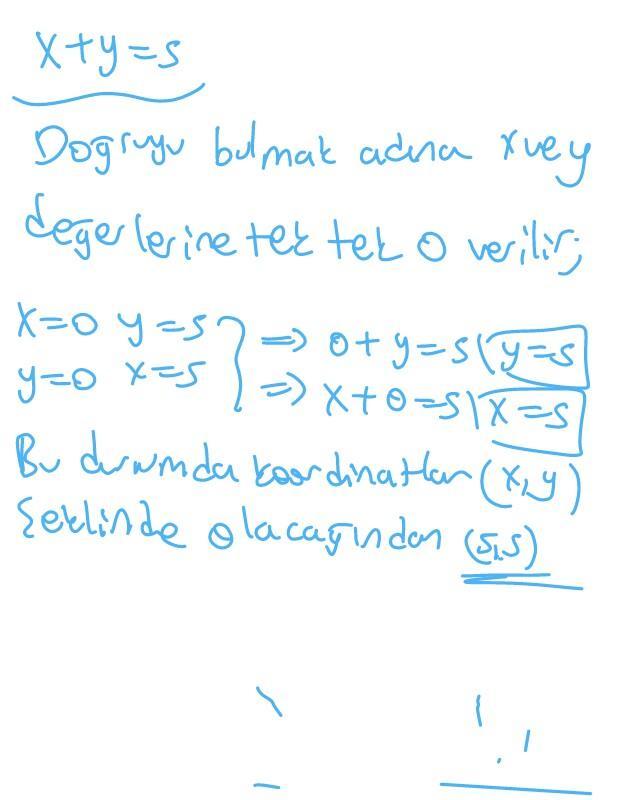 x+y=5
Doğruyu bulmak adına x ve y
değerlerine tek tek 0 verilir;
x=0 y=5 } ⇒ 0+y=5 \ y=5
y=0 x=5 } ⇒ x+0=5 \ x=5
Bu durumda koordinatları (x,y)
Şeklinde olacağından (5,5)